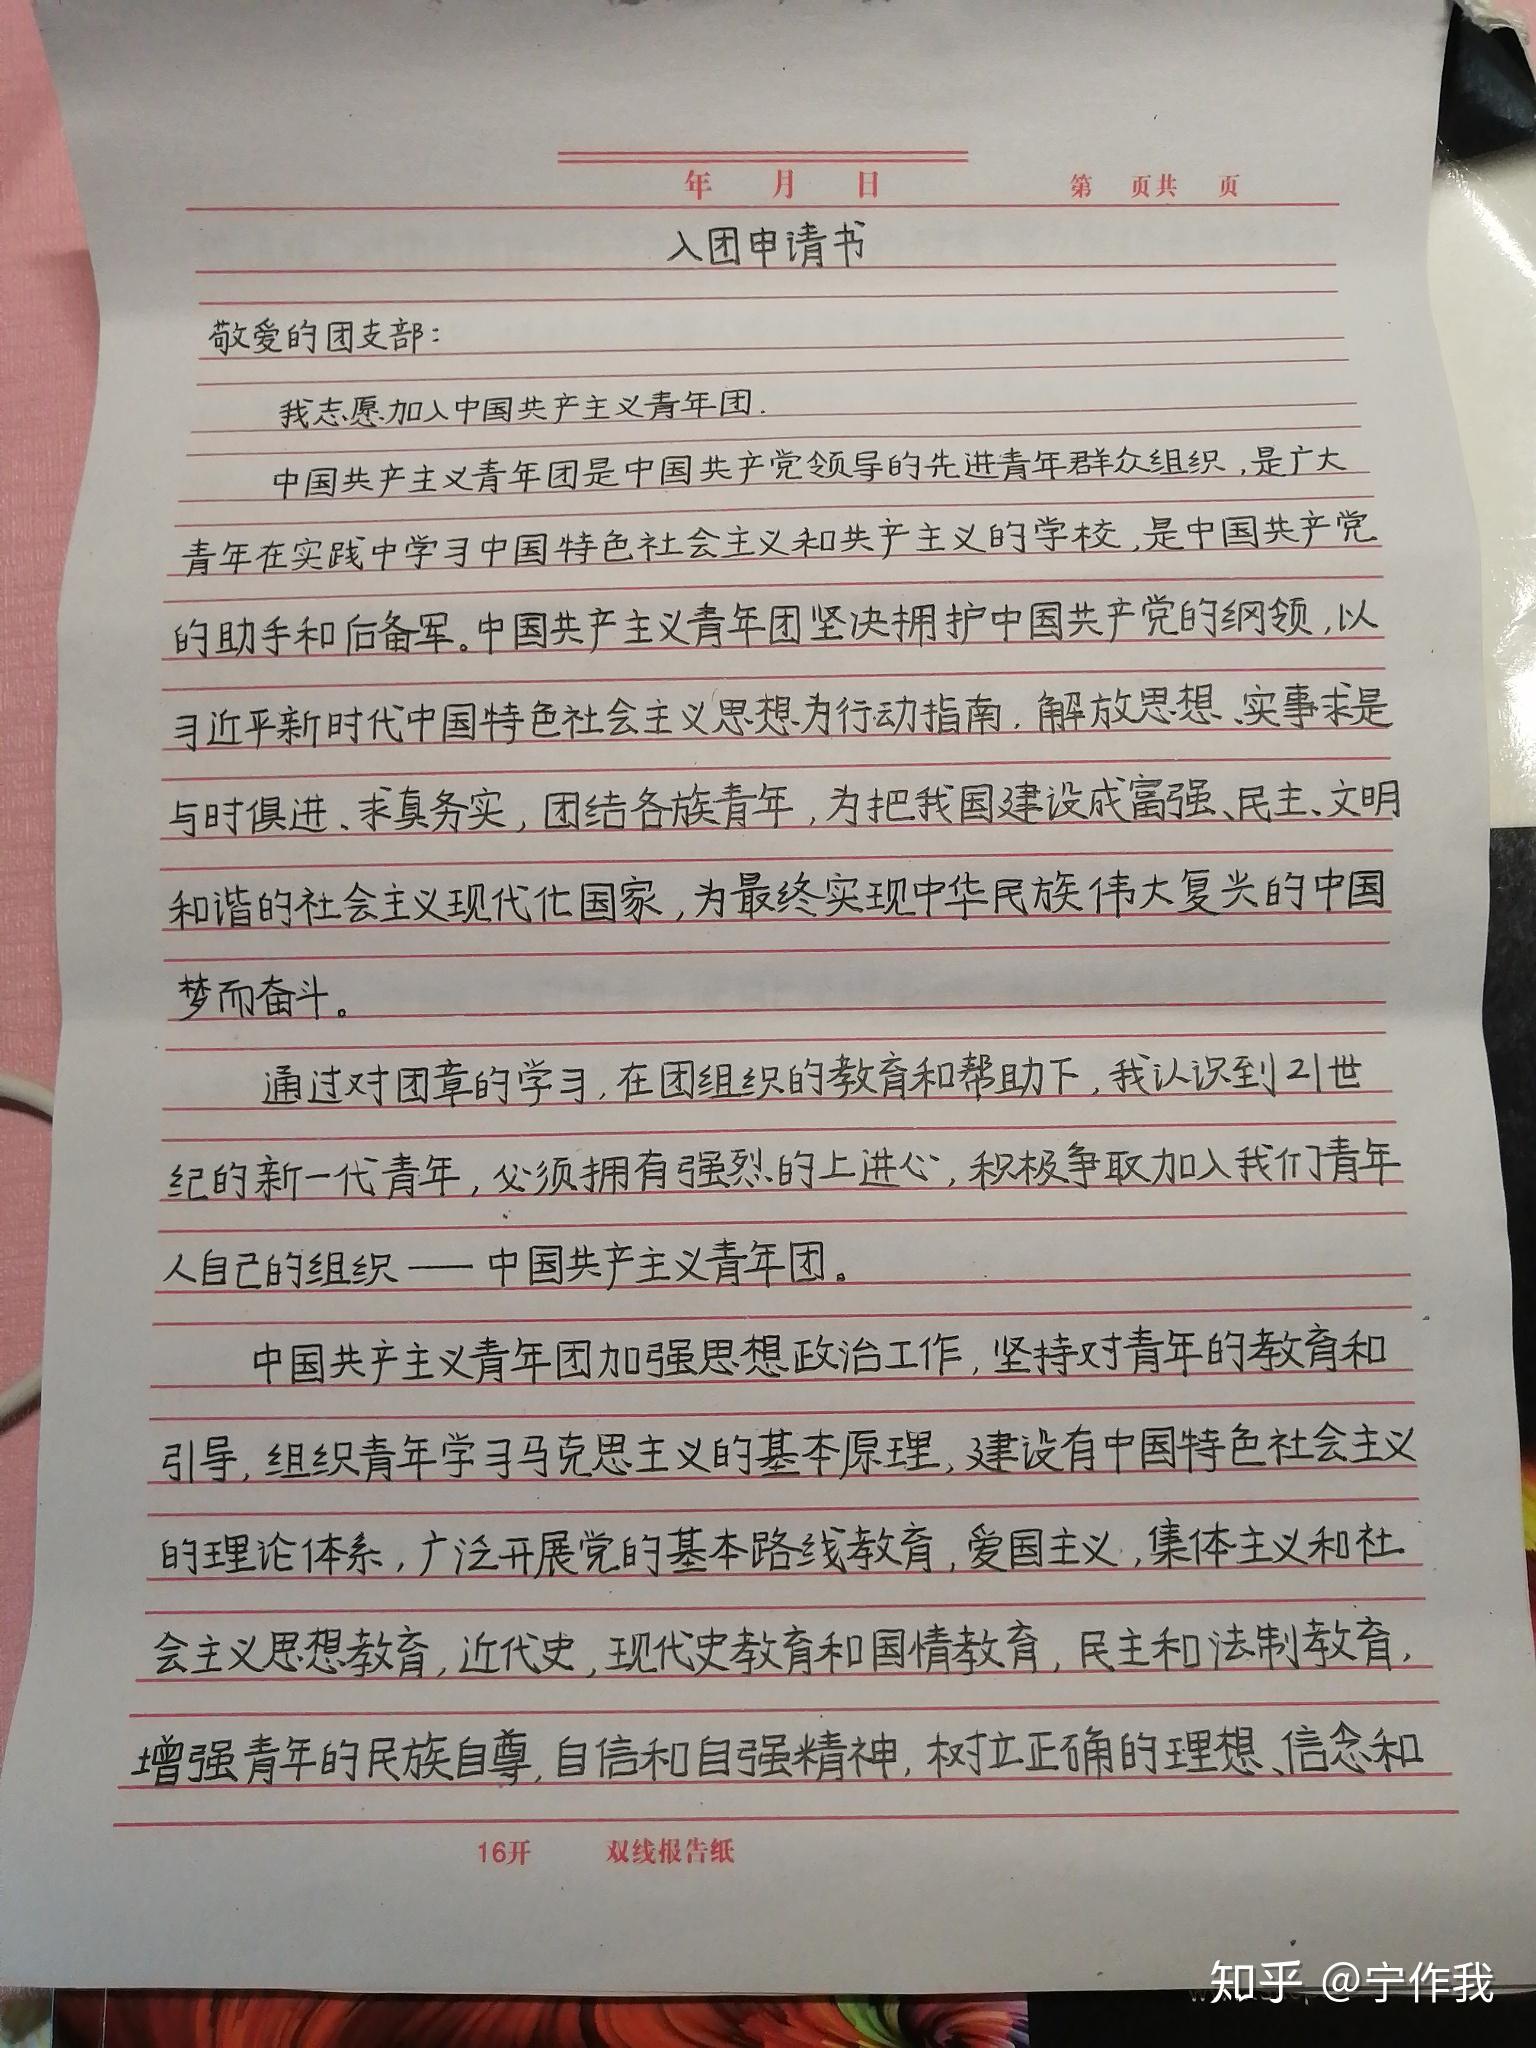 年 月 日 第 页共 页
入团申请书
敬爱的团支部：
我志愿加入中国共产主义青年团.
中国共产主义青年团是中国共产党领导的先进青年群众组织,是广大
青年在实践中学习中国特色社会主义和共产主义的学校,是中国共产党
的助手和后备军。中国共产主义青年团坚决拥护中国共产党的纲领,以
习近平新时代中国特色社会主义思想为行动指南.解放思想、实事求是
与时俱进、求真务实,团结各族青年,为把我国建设成富强、民主、文明
和谐的社会主义现代化国家,为最终实现中华民族伟大复兴的中国
梦而奋斗。
通过对团章的学习,在团组织的教育和帮助下,我认识到21世
纪的新一代青年,必须拥有强烈的上进心,积极争取加入我们青年
人自己的组织——中国共产主义青年团。
中国共产主义青年团加强思想政治工作,坚持对青年的教育和
引导,组织青年学习马克思主义的基本原理,建设有中国特色社会主义
的理论体系,广泛开展党的基本路线教育,爱国主义,集体主义和社
会主义思想教育,近代史,现代史教育和国情教育,民主和法制教育,
增强青年的民族自尊,自信和自强精神,树立正确的理想、信念和
16开 双线报告纸
知乎 @宁作我